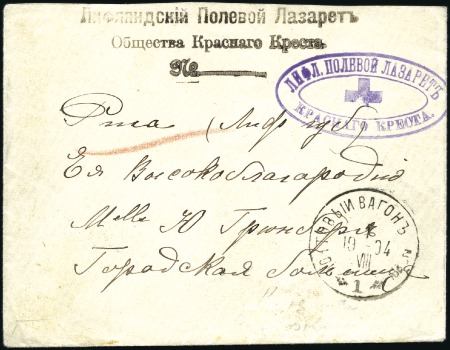 Лифляндскій Полевой Лазаретъ
Общества Краснаго Креста.
№
ЛИФЛ. ПОЛЕВОЙ ЛАЗАРЕТЪ
КРАСНАГО КРЕСТА.
Рига (Лифл губ)
Ея Высокоблагородію
Mlle Ю
Городская
ПОЧТОВЫЙ ВАГОНЪ
19 04
VIII
1